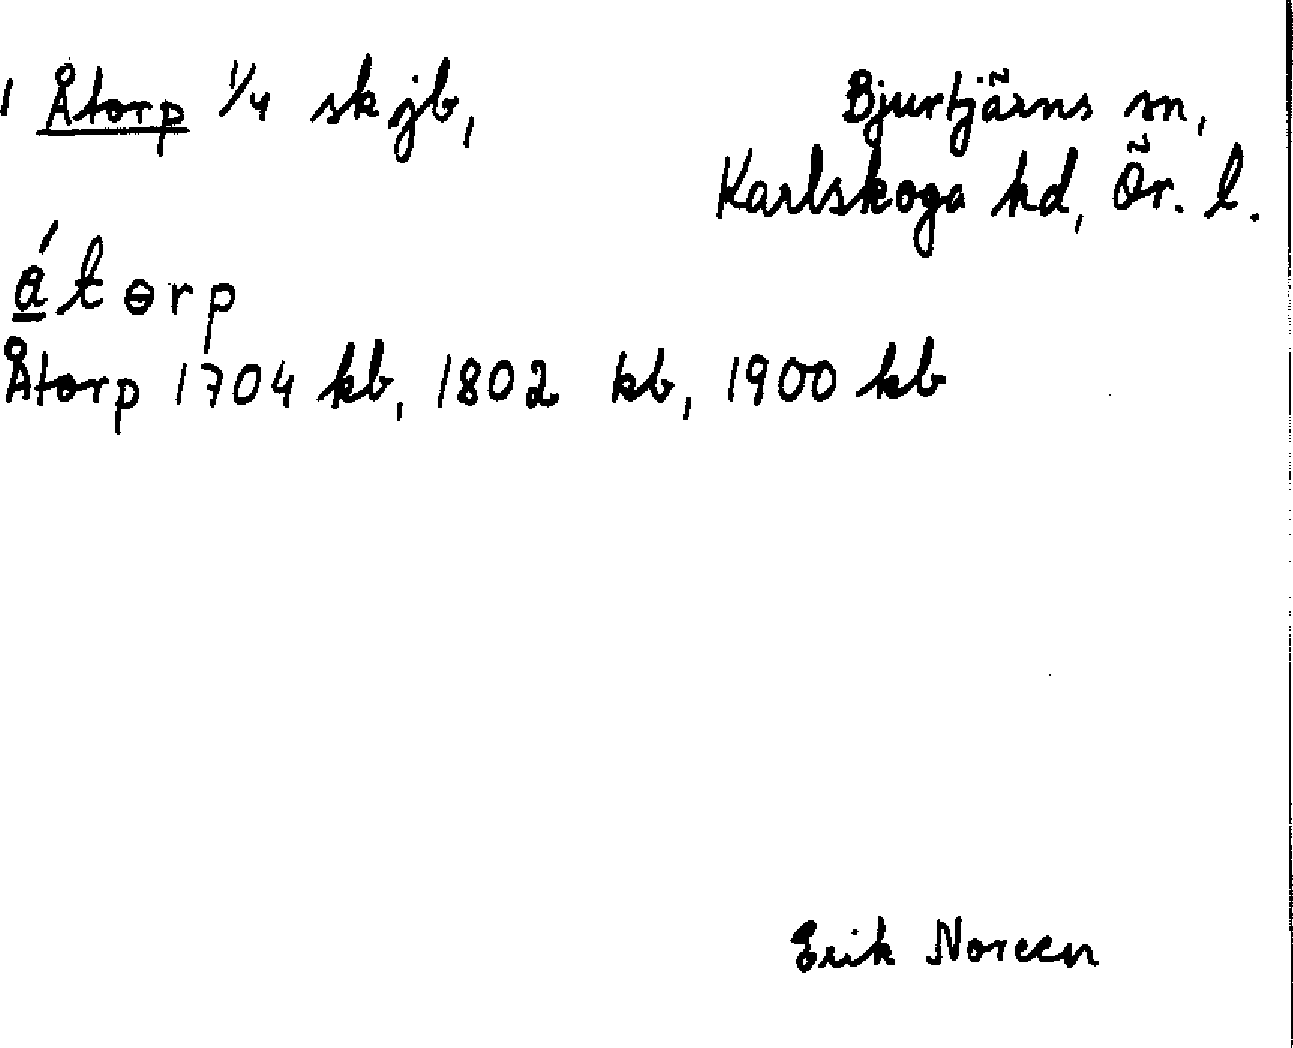 1 Åtorp 1/4 skjb, Bjurtjärns sn,
Karlskoga hd, Ör. l.
átɵrp
Åtorp 1704 kb, 1802 kb, 1900 kb
Erik Noreen